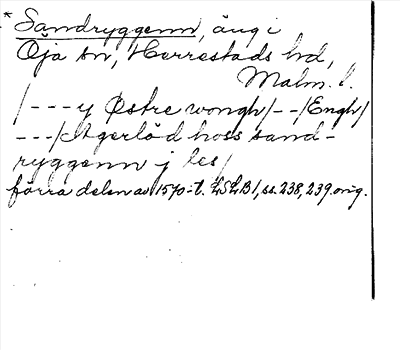 * Sandryggenn, äng i
Öja sn, Herrestads hd,
Malm. l.
/---y Østre wongh/--/Engh/
---/It gerlöd hoss sand-
ryggenn j les/
förra delen av 1570-t. LSLB1, ss. 238, 239 orig.